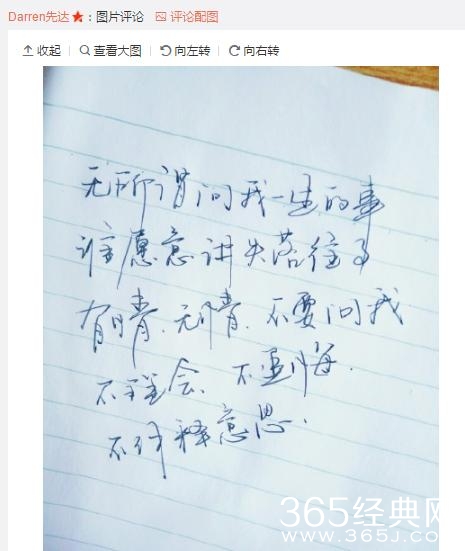 Darren先达：图片评论 评论配图
收起 查看大图 向左转 向右转
无所谓问我一生的事
谁愿意讲失落往事
有情.无情.不要问我
不理会.不追悔.
不解释意思.
365经典网
WWW.365J.COM